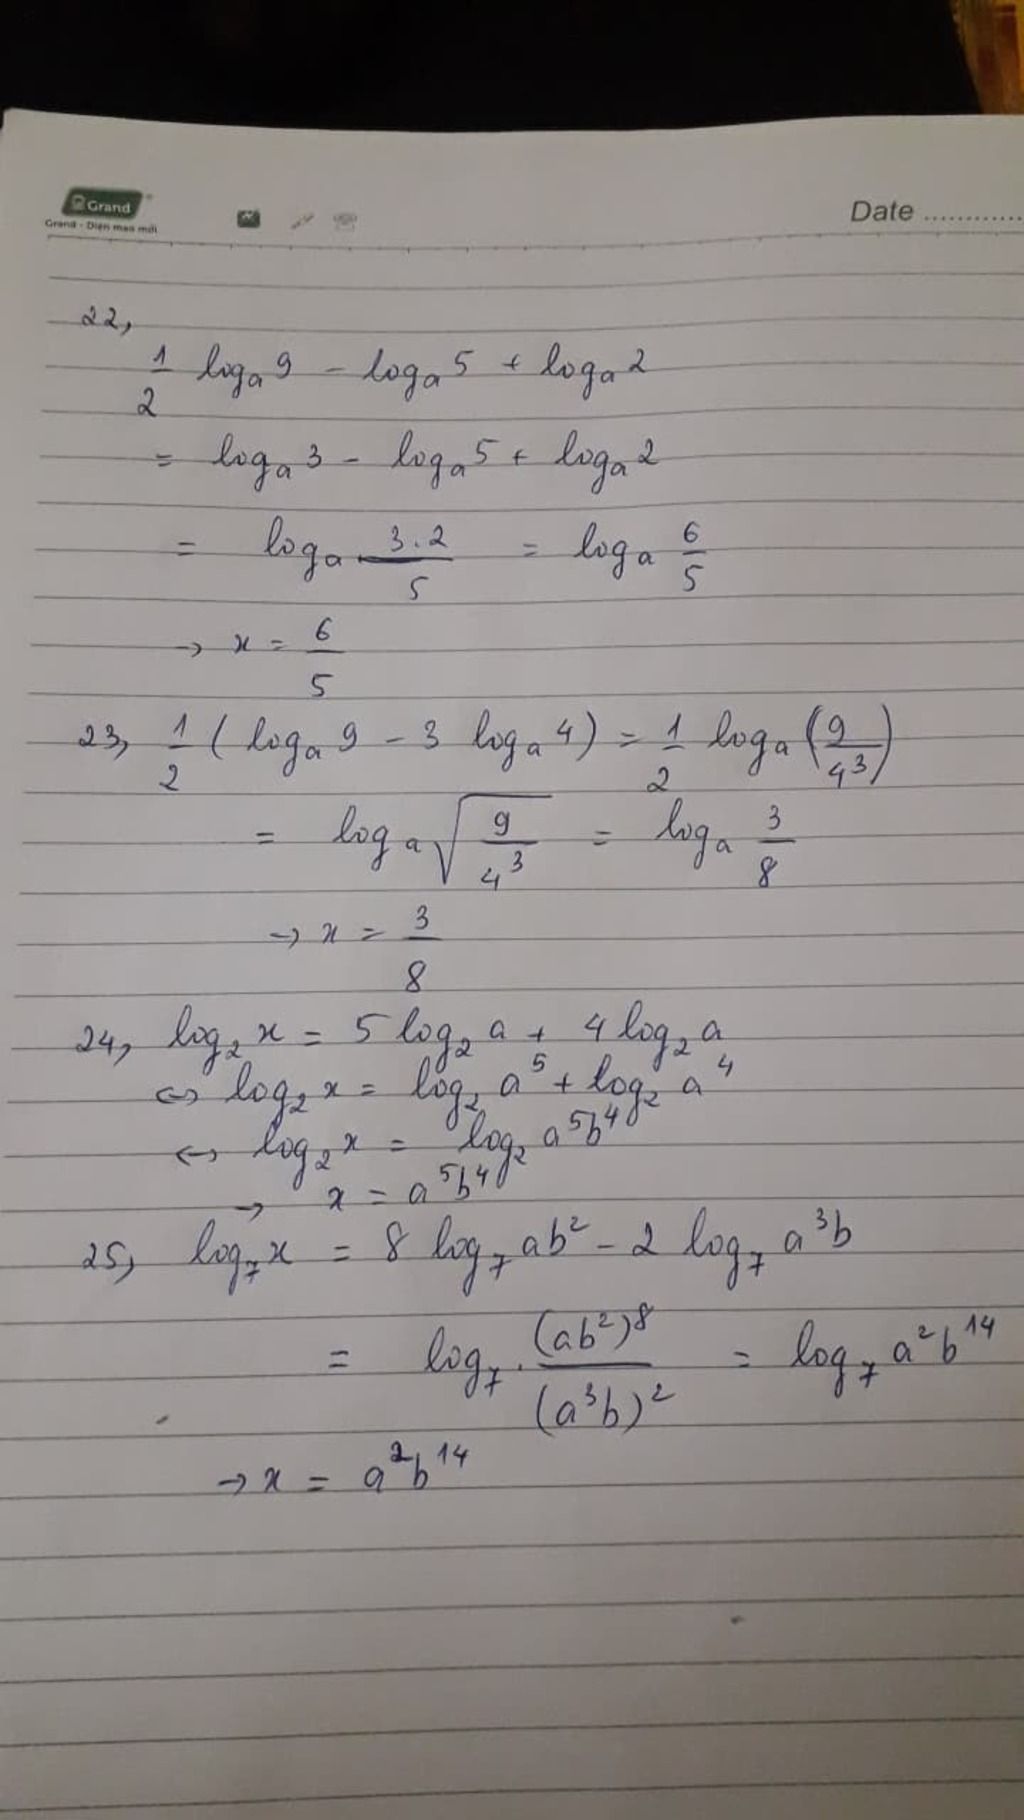 Grand
Grand - Diện mạo mới
Date ............
22,
1/2 log_a 9 - log_a 5 + log_a 2
= log_a 3 - log_a 5 + log_a 2
= log_a 3.2/5 = log_a 6/5
→ x = 6/5
23, 1/2 (log_a 9 - 3 log_a 4) = 1/2 log_a (9/4^3)
= log_a √(9/4^3) = log_a 3/8
→ x = 3/8
24, log_2 x = 5 log_2 a + 4 log_2 a
↔ log_2 x = log_2 a^5 + log_2 a^4
↔ log_2 x = log_2 a^5b^4
→ x = a^5b^4
25, log_7 x = 8 log_7 ab^2 - 2 log_7 a^3b
= log_7 . (ab^2)^8/(a^3b)^2 = log_7 a^2b^14
→ x = a^2b^14